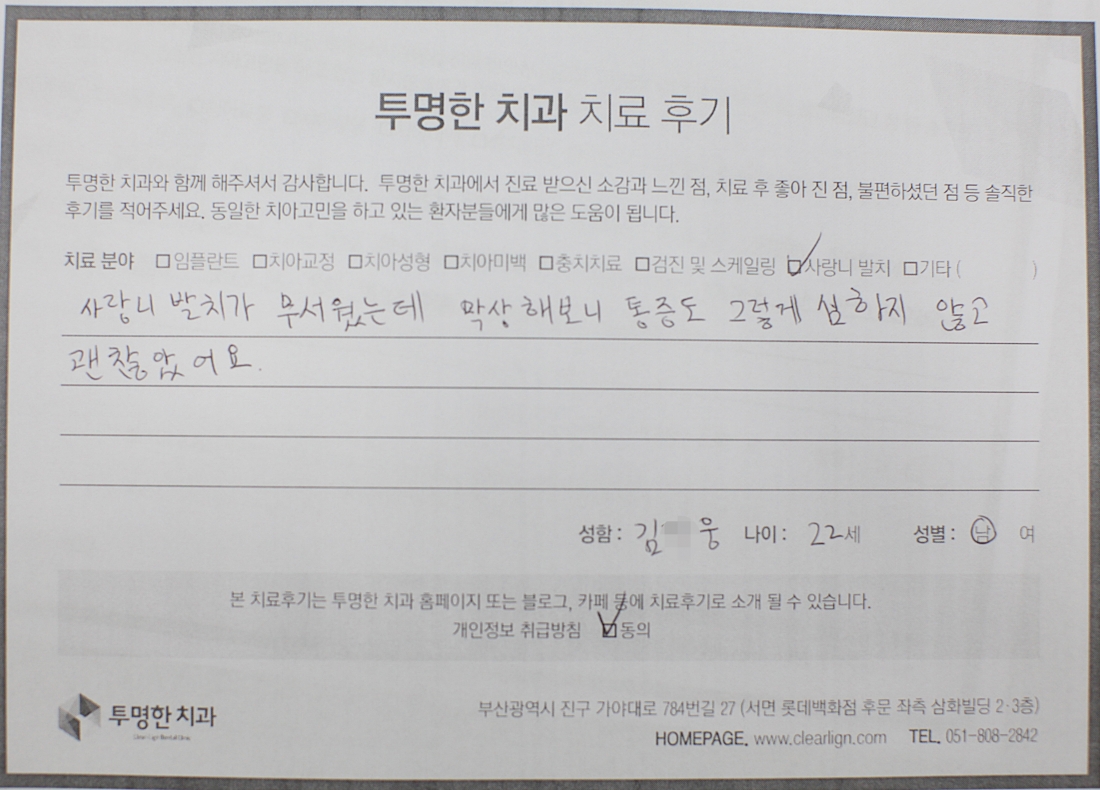 투명한 치과 치료 후기
투명한 치과와 함께 해주셔서 감사합니다. 투명한 치과에서 진료 받으신 소감과 느낀 점, 치료 후 좋아 진 점, 불편하셨던 점 등 솔직한
후기를 적어주세요. 동일한 치아고민을 하고 있는 환자분들에게 많은 도움이 됩니다.
치료 분야 □임플란트 □치아교정 □치아성형 □치아미백 □충치치료 □검진 및 스케일링 ☑사랑니 발치 □기타 ( )
사랑니 발치가 무서웠는데 막상 해보니 통증도 그렇게 심하지 않고
괜찮았어요.
성함 : 김 웅 나이 : 22세 성별 : 남 여
본 치료후기는 투명한 치과 홈페이지 또는 블로그, 카페 등에 치료후기로 소개 될 수 있습니다.
개인정보 취급방침 ☑동의
투명한 치과
부산광역시 진구 가야대로 784번길 27 (서면 롯데백화점 후문 좌측 삼화빌딩 2·3층)
HOMEPAGE. www.clearlign.com TEL. 051-808-2842